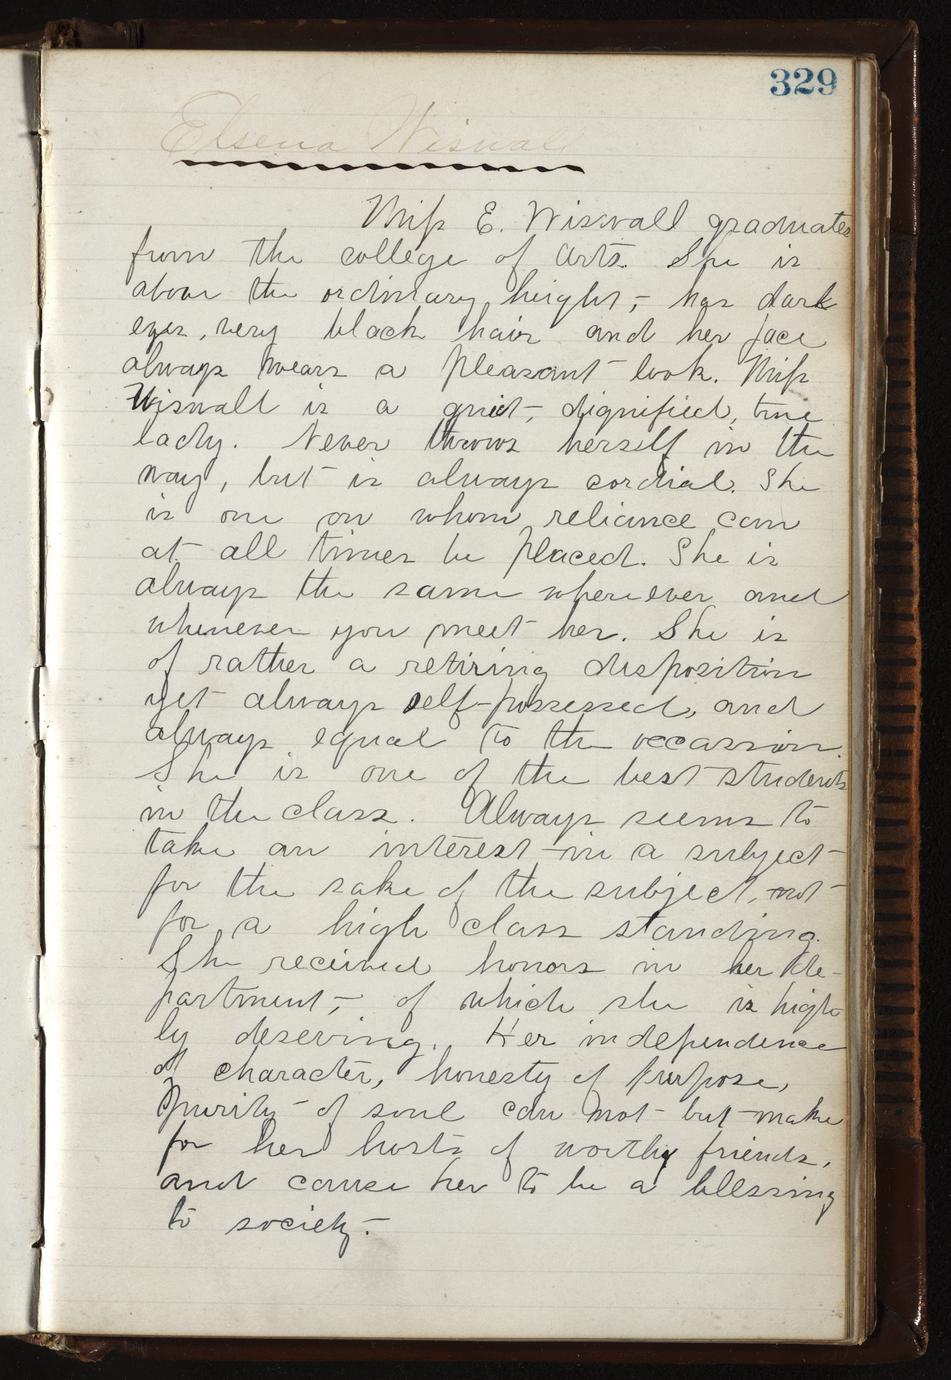 329
Elsena Wiswall
Miss E. Wiswall graduates
from the college of Arts. She is
above the ordinary height, has dark
eyes, very black hair and her face
always wears a pleasant look. Miss
Wiswall is a quiet, dignified, true
lady. Never throws herself in the
way, but is always cordial. She
is one on whom reliance can
at all times be placed. She is
always the same where ever and
whenever you meet her. She is
of rather a retiring disposition
yet always self-possessed, and
always equal to the occassion.
She is one of the best students
in the class. Always seems to
take an interest in a subject
for the sake of the subject, not
for a high class standing.
She received honors in her de-
partment, of which she is high
ly deserving. Her independence
of character, honesty of purpose,
purity of soul can not but make
for her hosts of worthy friends,
and cause her to be a blessing
to society.